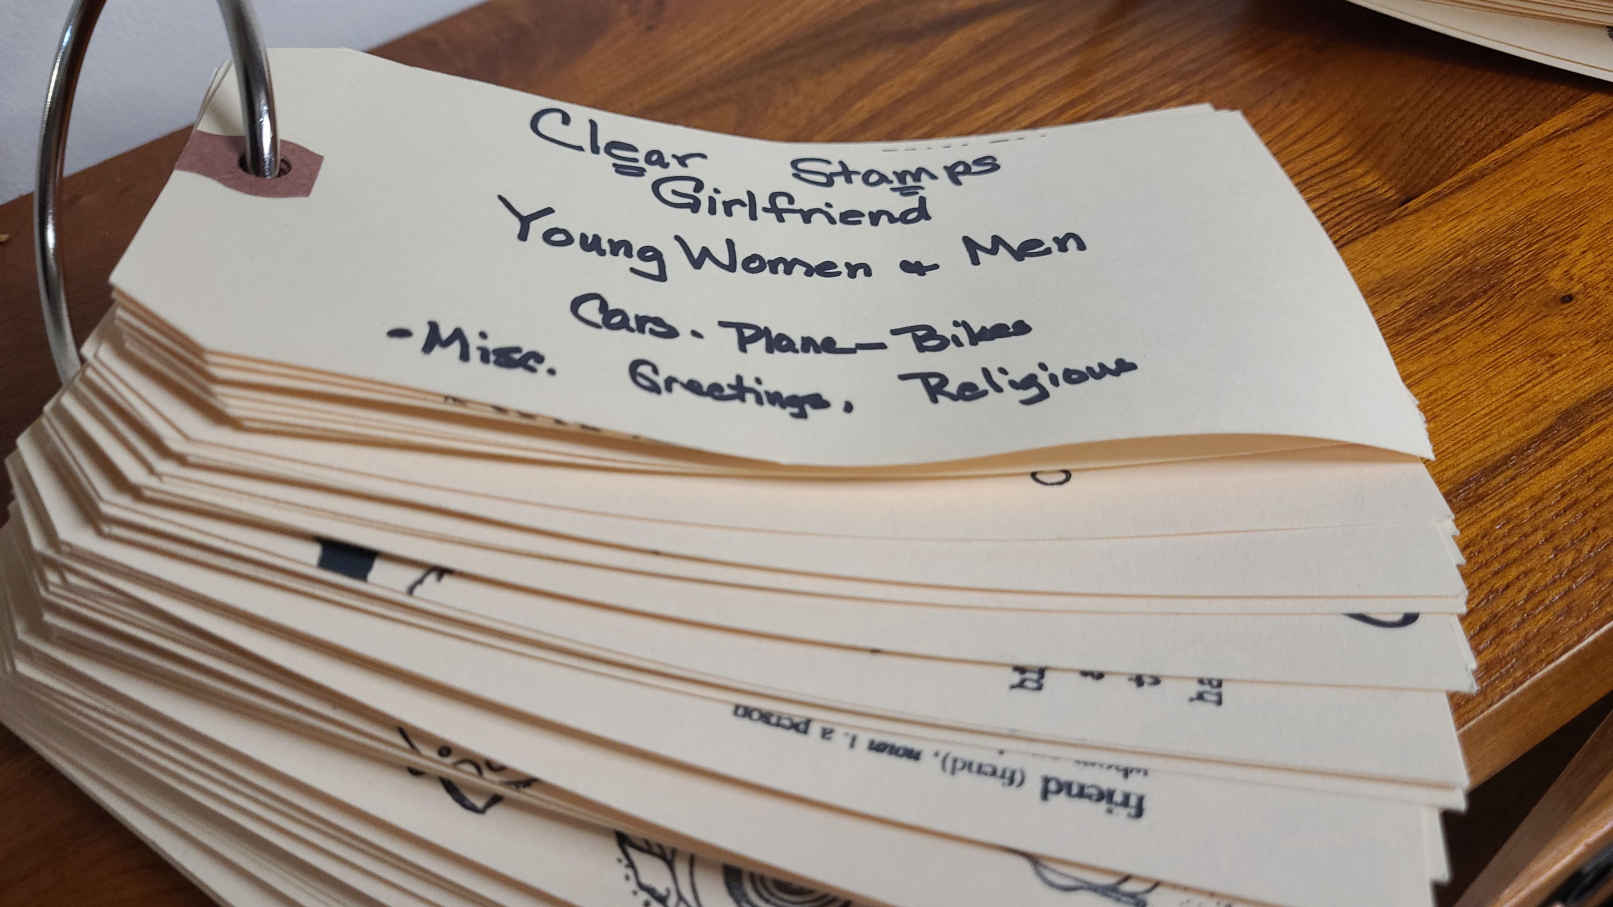 Clear Stamps
Girlfriend
Young Women & Men
Cars. Plane- Bikes
-Misc. Greetings, Religious
friend (frend), noun 1. a person